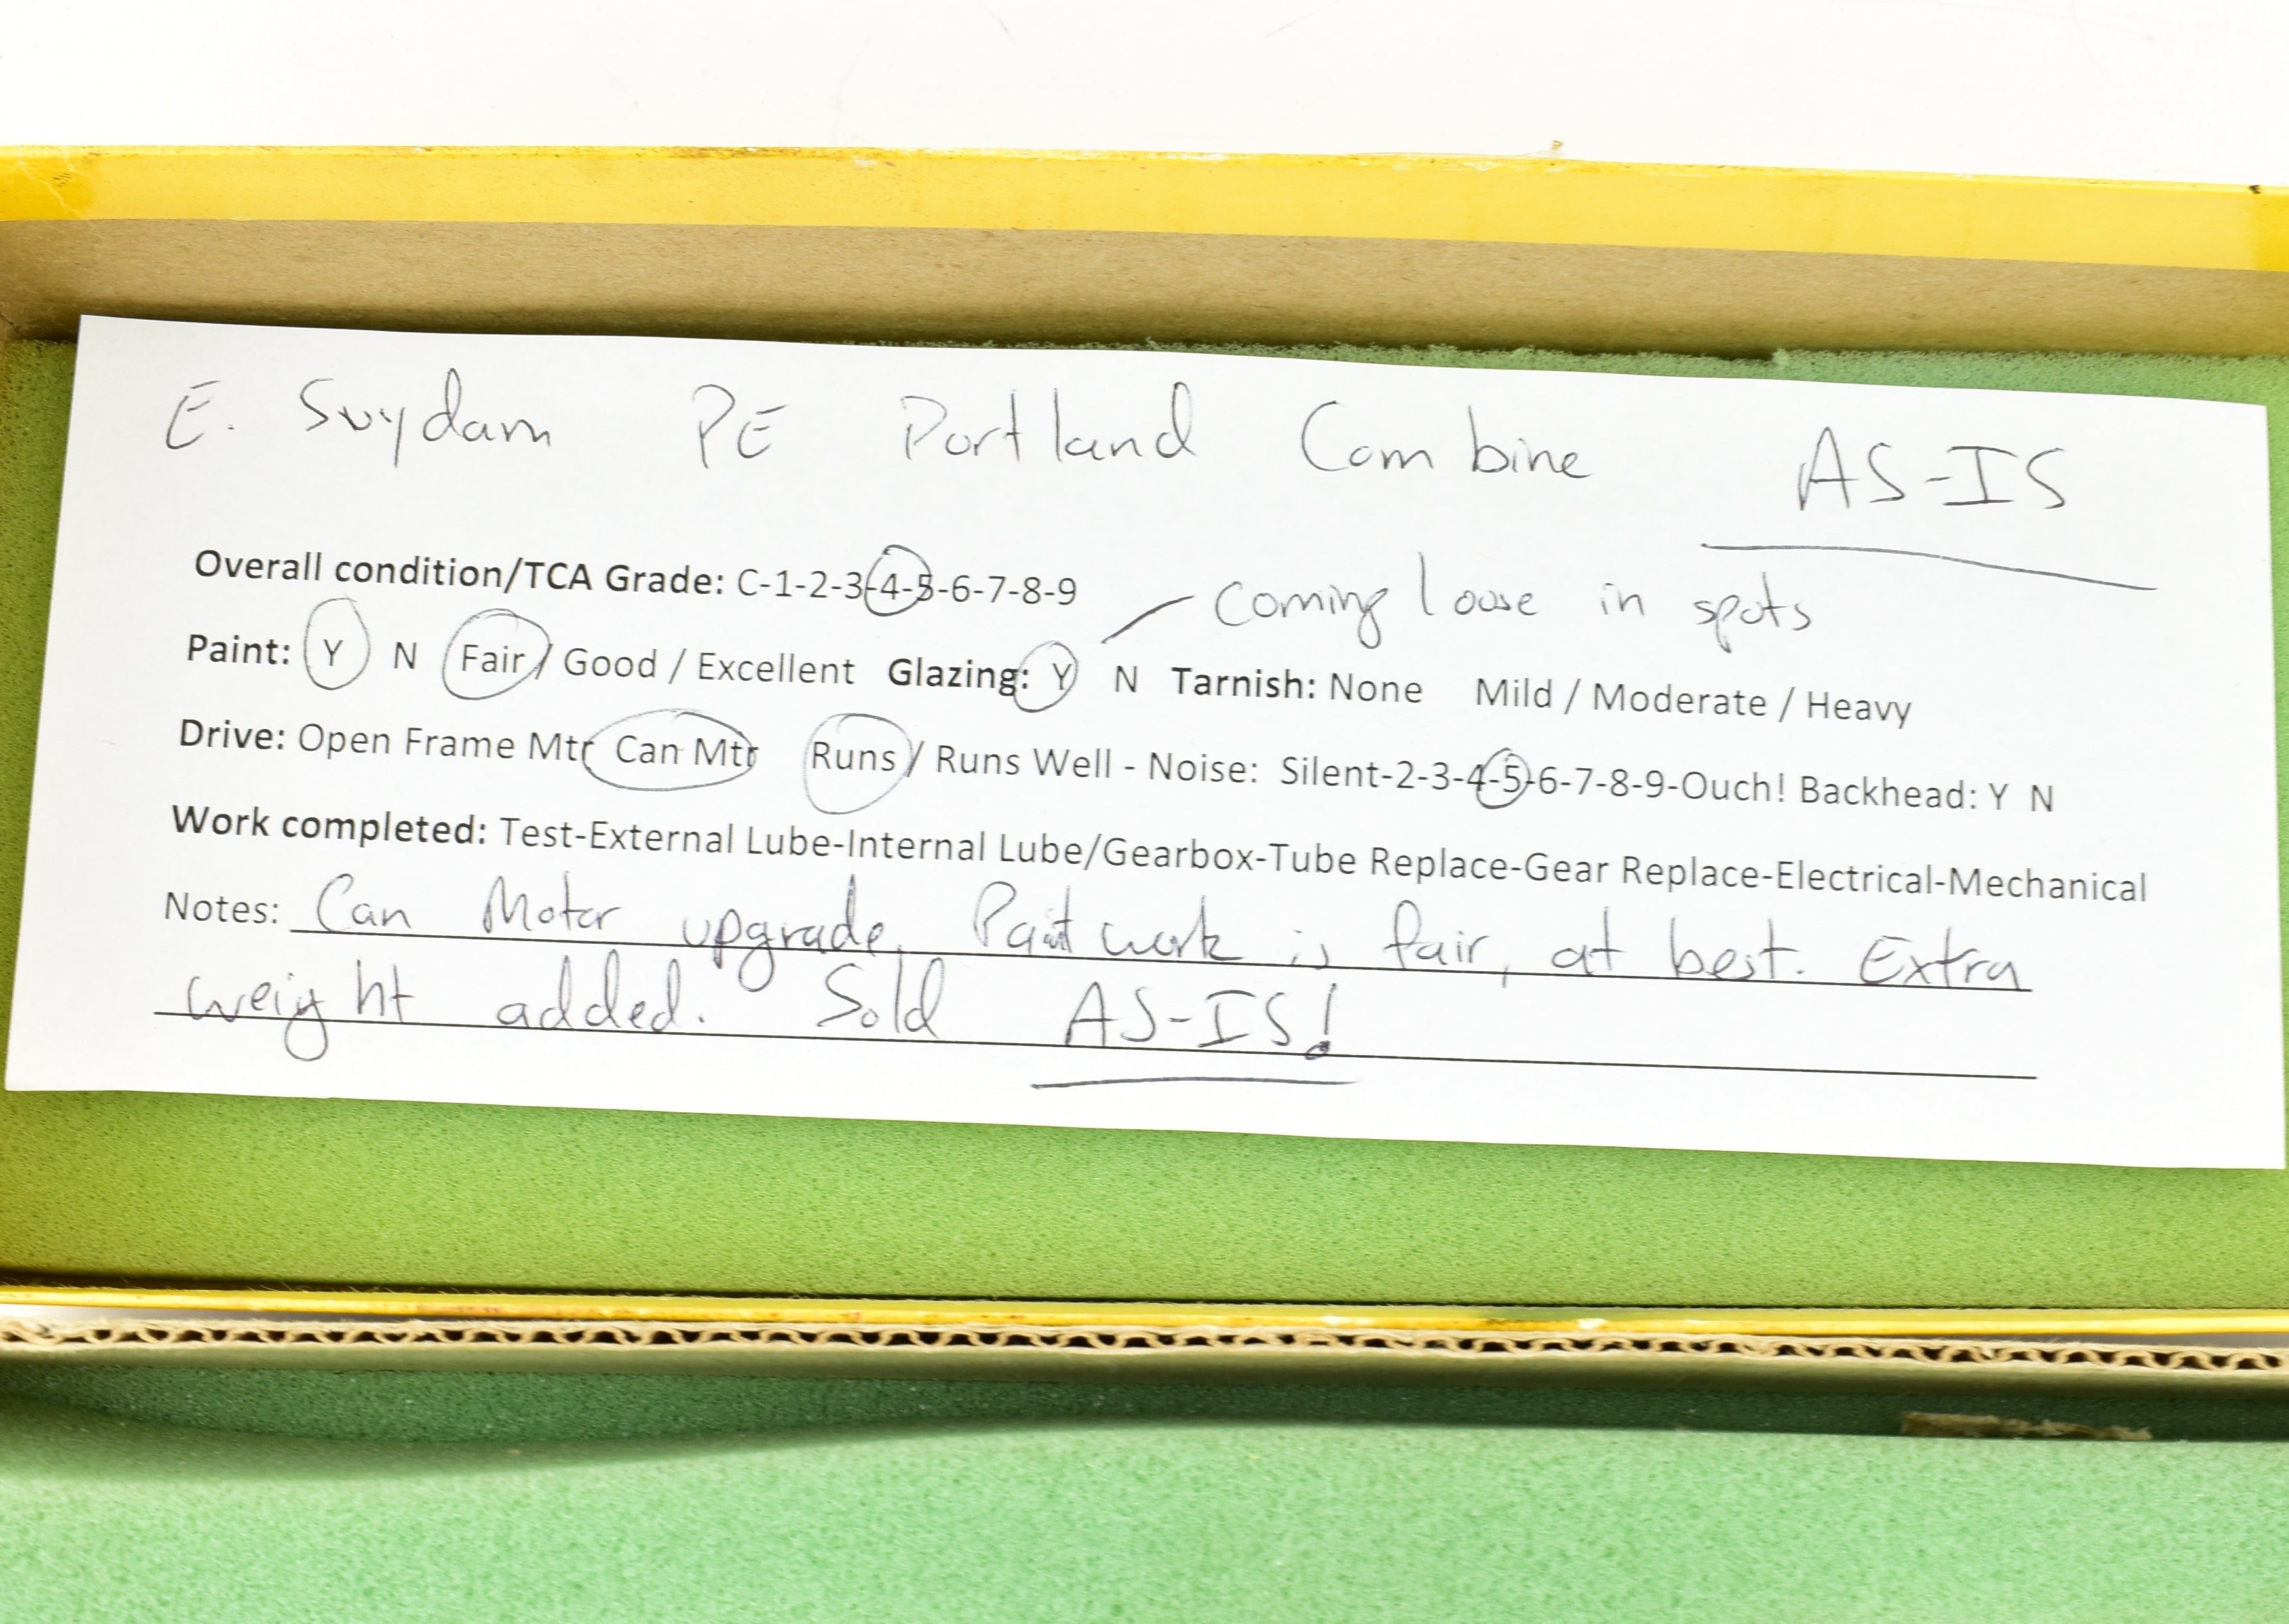 E. Suydam PE Portland Combine AS-IS
Overall condition/TCA Grade: C-1-2-3-4-5-6-7-8-9 coming loose in spots
Paint: Y N Fair / Good / Excellent Glazing: Y N Tarnish: None Mild / Moderate / Heavy
Drive: Open Frame Mtr Can Mtr Runs / Runs Well - Noise: Silent-2-3-4-5-6-7-8-9-Ouch! Backhead: Y N
Work completed: Test-External Lube-Internal Lube/Gearbox-Tube Replace-Gear Replace-Electrical-Mechanical
Notes: Can Motor upgrade. Paint work is fair, at best. Extra
weight added. Sold AS-IS!